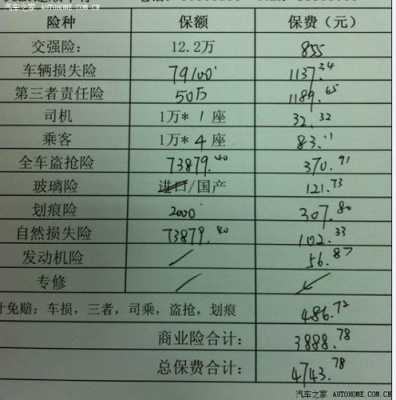 汽车之家 AUTOHOME.COM.CN
险种 保额 保费（元）
交强险： 12.2万 855
车辆损失险 79100 1137.34
第三者责任险 50万 1189.65
司机 1万* 1 座 32.32
乘客 1万* 4 座 83.11
全车盗抢险 73879.40 370.91
玻璃险 进口/国产 121.73
划痕险 2000 307.80
自然损失险 73879.40 102.33
发动机险 / 56.87
专修 /
计免赔：车损，三者，司乘，盗抢，划痕 486.72
商业险合计： 3888.78
总保费合计： 4743.78
汽车之家 AUTOHOME.COM.CN